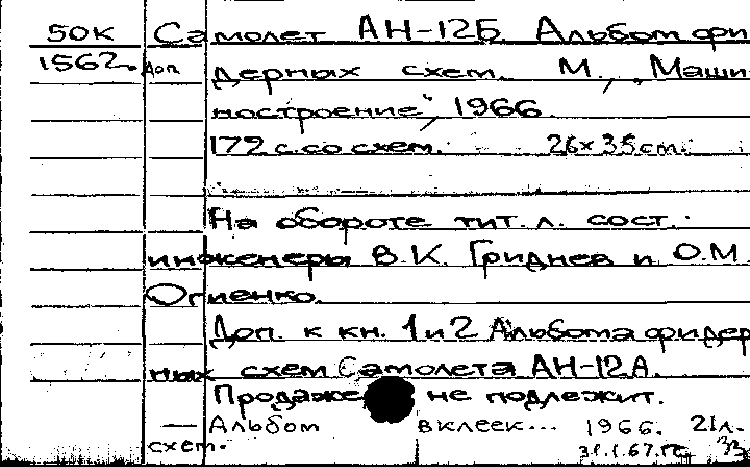 50К Самолет АН-12Б. Альбом фи-
1562. Доп. дерных схем. М., „Маши-
ностроение", 1966.
172 с. со схем. 26×35 cm.
На обороте тит. л. сост.:
инженеры В.К. Гриднев и О.М.
Огиенко.
Доп. к кн. 1 и 2 Альбома фидер-
ных схем Самолета АН-12А.
Продаже не подлежит.
— Альбом вклеек... 1966. 21 л.
схем. 31.1.67.